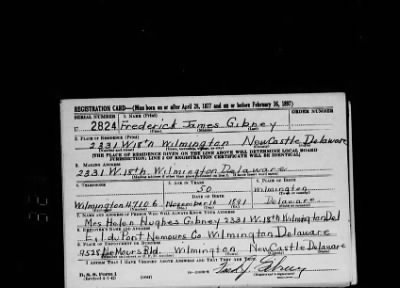 REGISTRATION CARD—(Men born on or after April 28, 1877 and on or before February 16, 1897)
SERIAL NUMBER 1. NAME (Print) ORDER NUMBER
2824 Frederick James Gibney
(First) (Middle) (Last)
2. PLACE OF RESIDENCE (Print)
2331 W. 18th Wilmington New Castle Delaware
[THE PLACE OF RESIDENCE GIVEN ON THE LINE ABOVE WILL DETERMINE LOCAL BOARD
JURISDICTION; LINE 2 OF REGISTRATION CERTIFICATE WILL BE IDENTICAL]
3. MAILING ADDRESS
2331 W. 18th. Wilmington Delaware
4. TELEPHONE 5. AGE IN YEARS 6. PLACE OF BIRTH
50 Wilmington
Wilmington 47106 November 16 1891 Delaware
7. NAME AND ADDRESS OF PERSON WHO WILL ALWAYS KNOW YOUR ADDRESS
Mrs Helen Hughes Gibney 2331 W. 18th Wilmington Del
8. EMPLOYER'S NAME AND ADDRESS
E. I. duPont Nemours Co. Wilmington Delaware
9. PLACE OF EMPLOYMENT OR BUSINESS
Wilmington New Castle Delaware
I AFFIRM THAT I HAVE VERIFIED ABOVE ANSWERS AND THAT THEY ARE TRUE.
D. S. S. Form 1